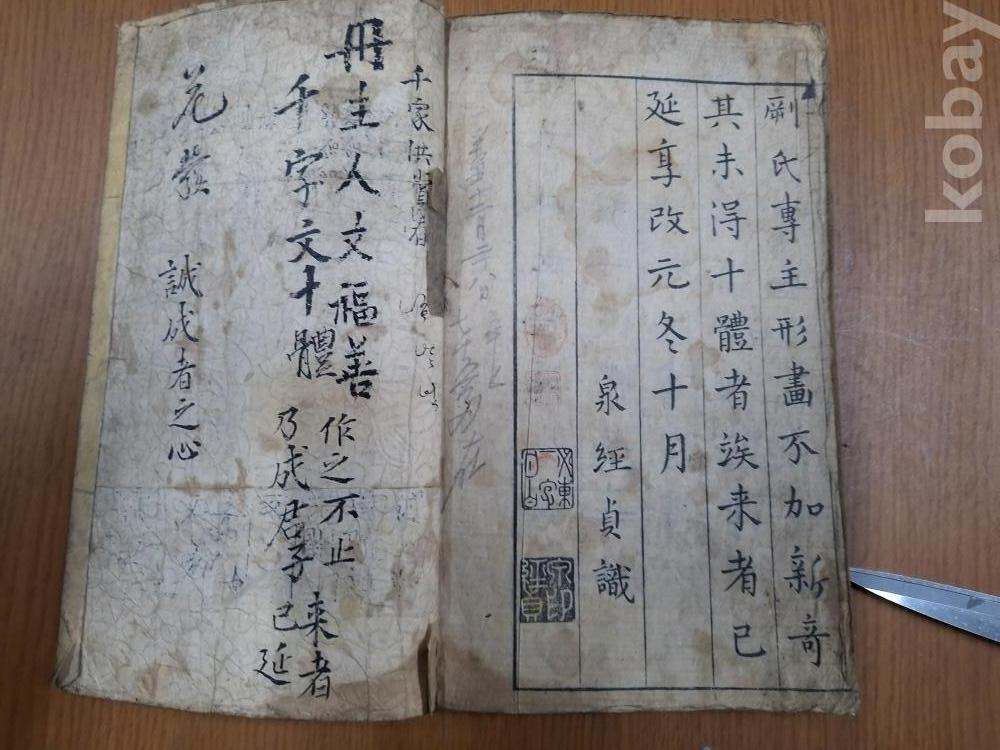 剛氏專主形畫不加新奇
其未淂十體者竢来者已
延享改元冬十月
泉經貞識
千家供賞君
冊主人文福善
作之不止
来者
千字文十體
乃成君子已延
花發
誠成者之心
kobay